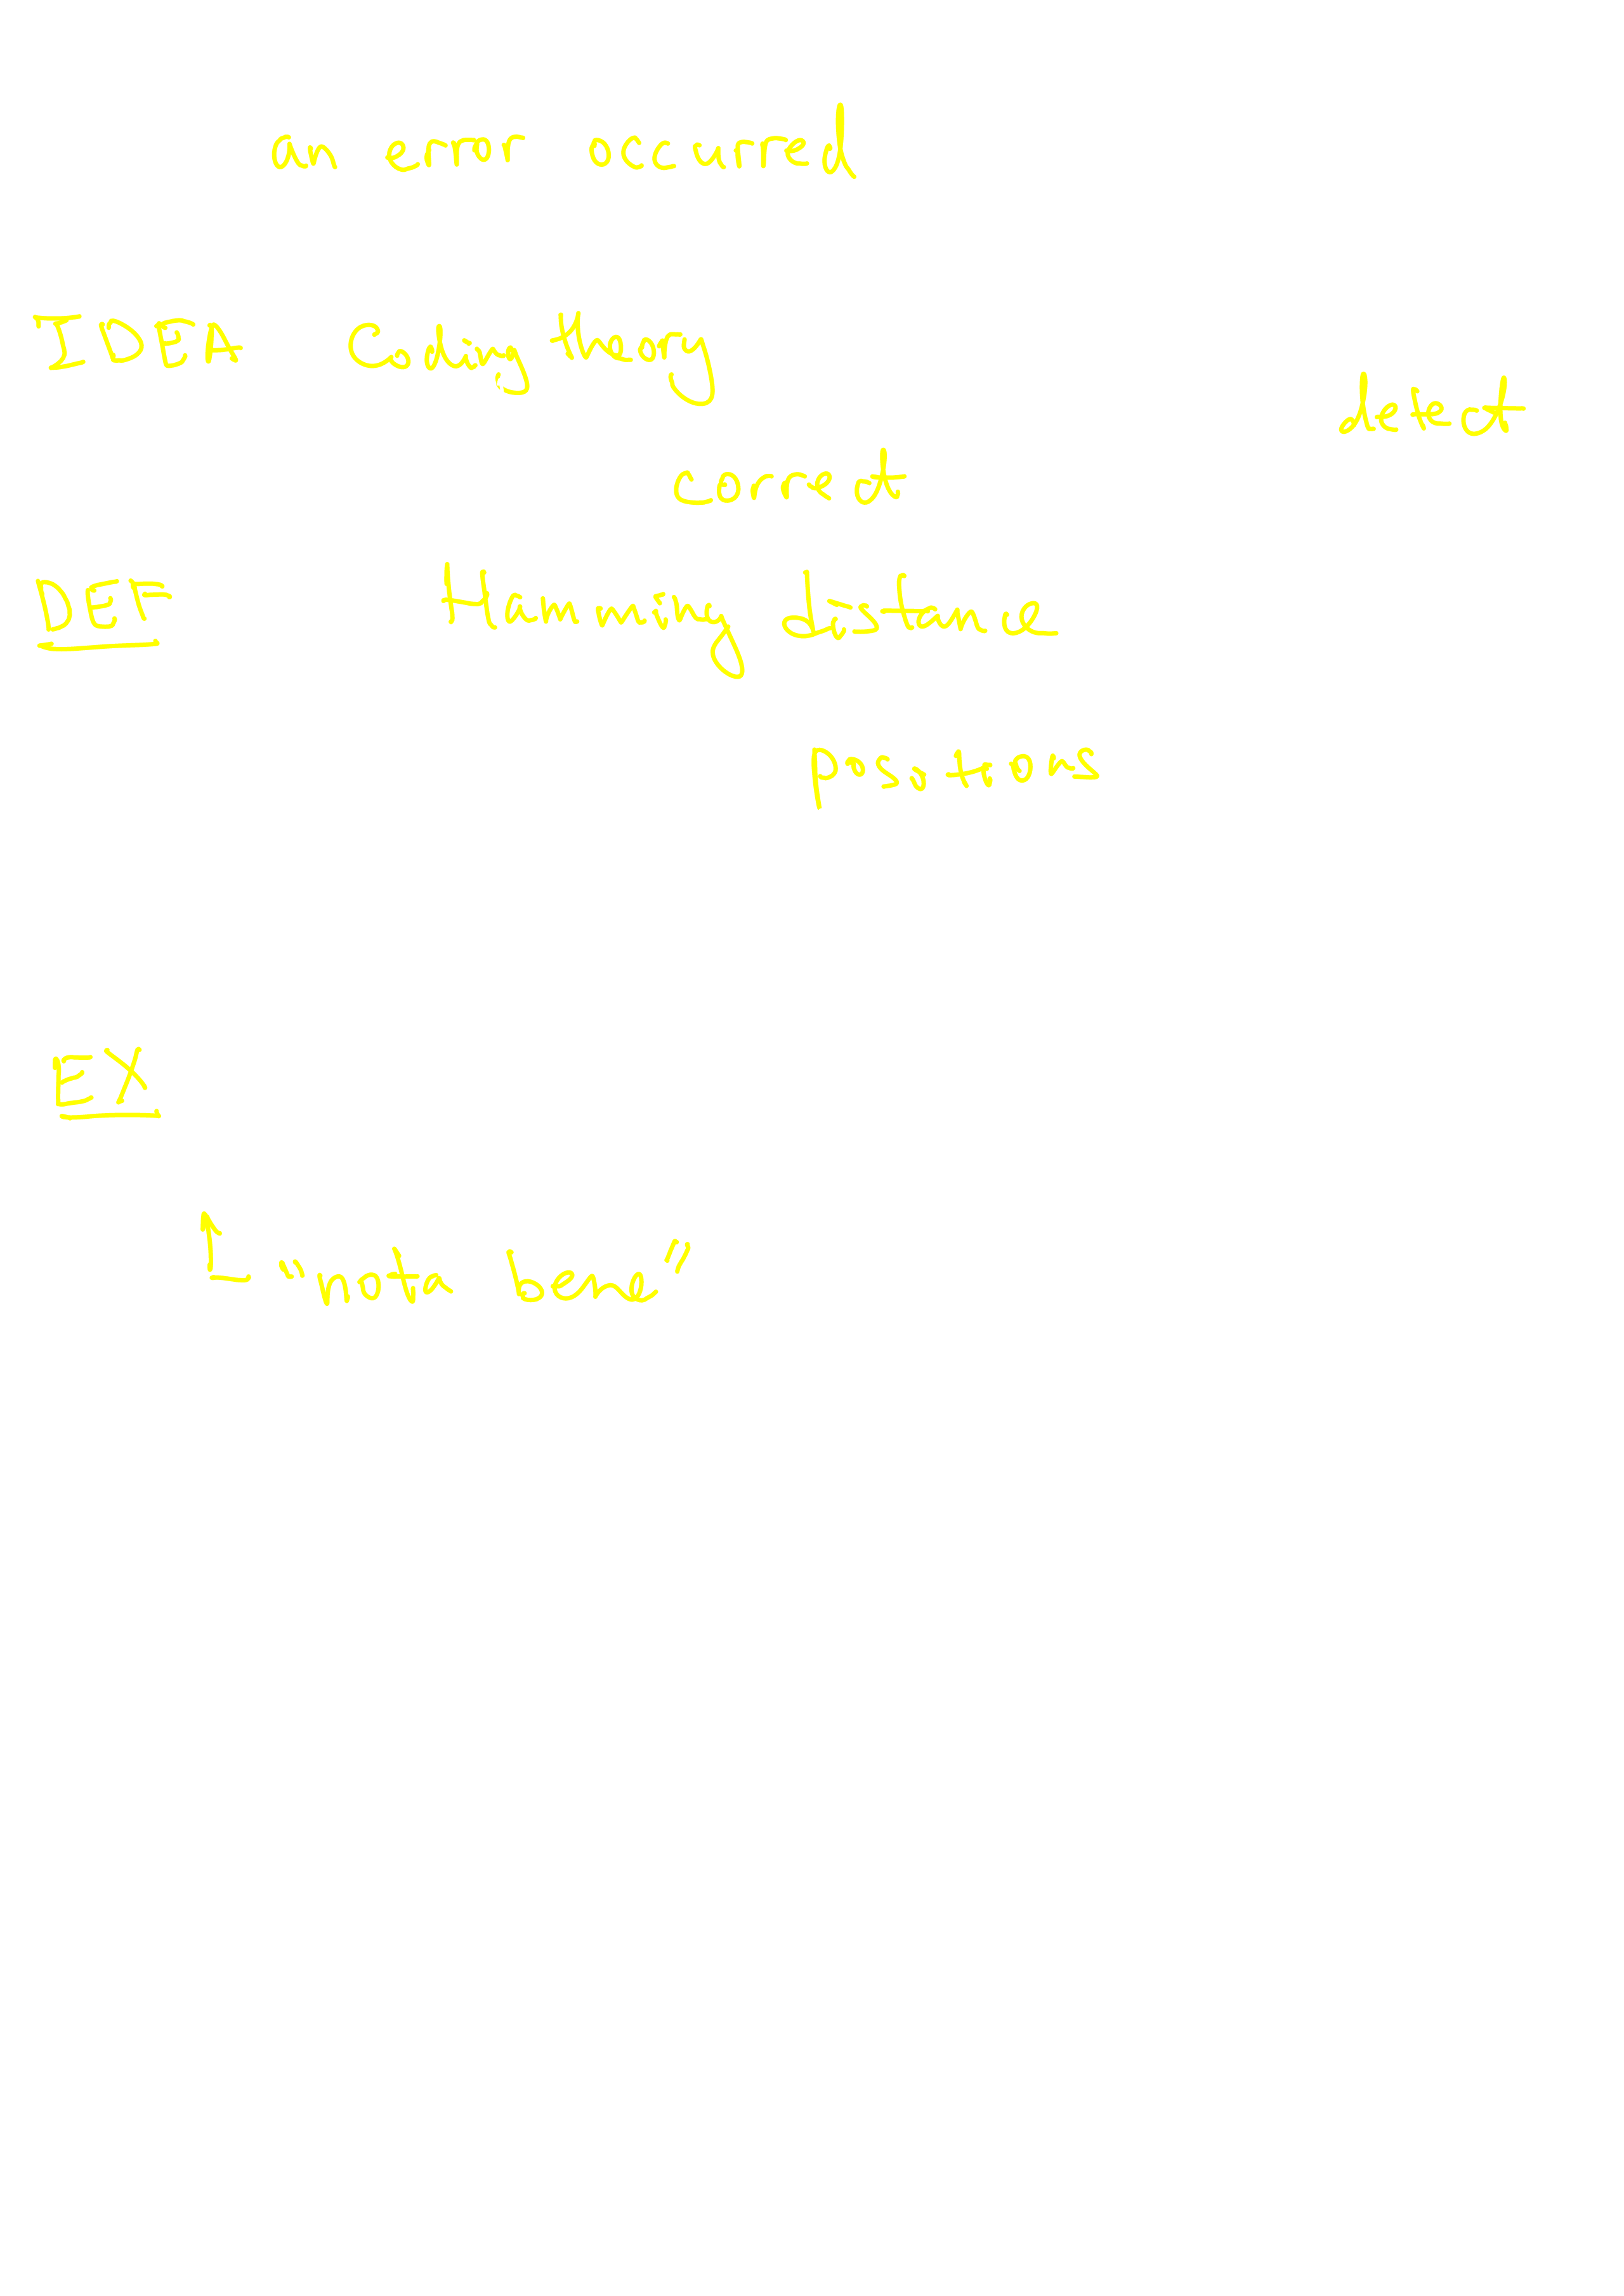 an error occurred
IDEA Coding theory
detect
correct
DEF Hamming distance
positions
EX
"nota bene"